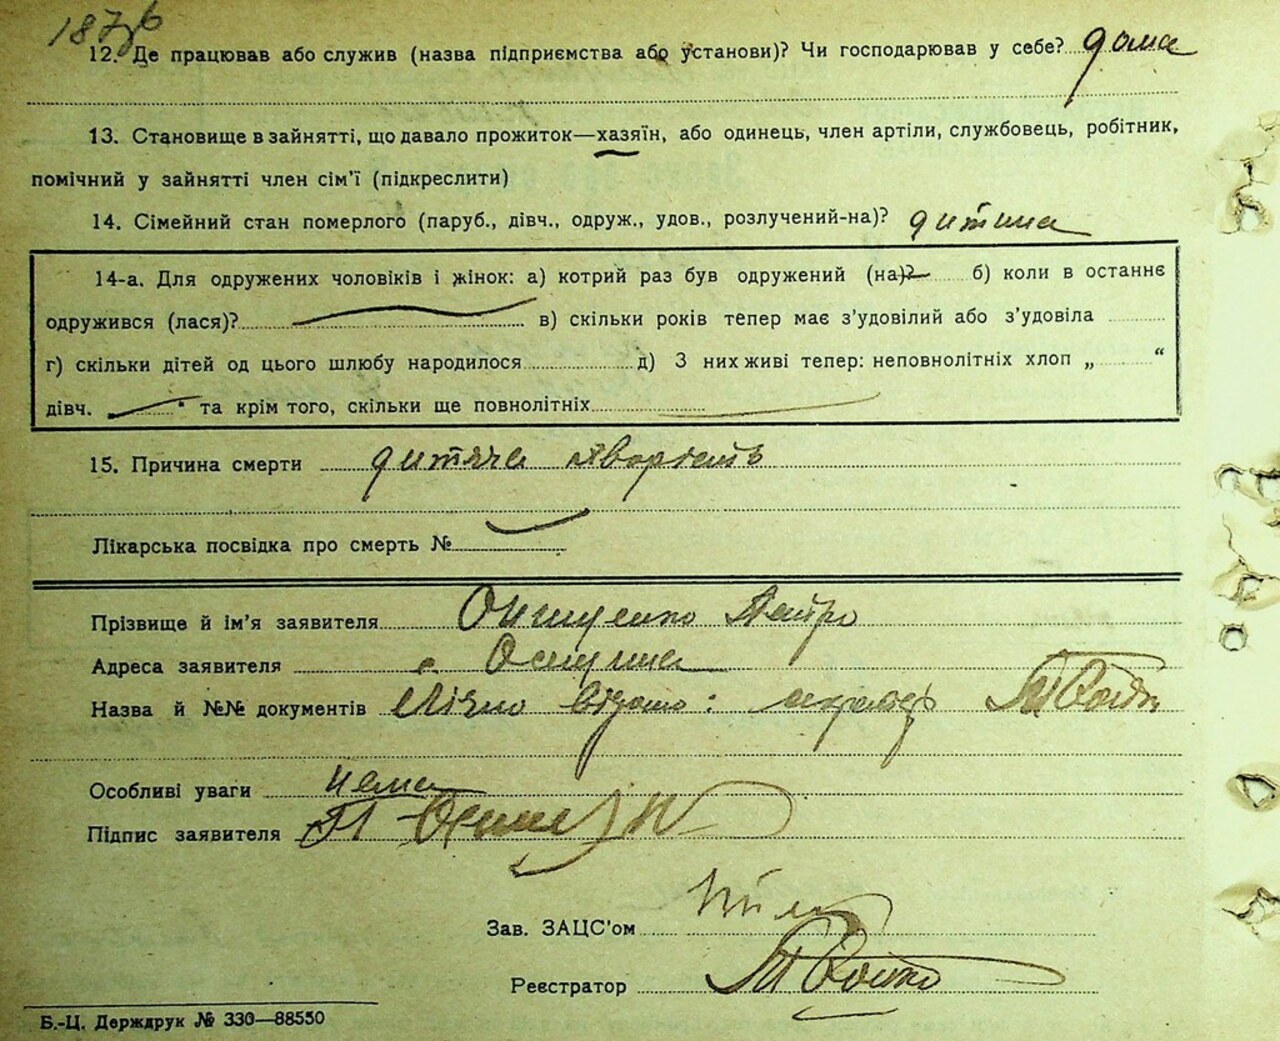 187зб
12. Де працював або служив (назва підприємства або установи)? Чи господарював у себе? дома
13. Становище в зайнятті, що давало прожиток—хазяїн, або одинець, член артіли, службовець, робітник,
помічний у зайнятті член сім'ї (підкреслити)
14. Сімейний стан померлого (паруб., дівч., одруж., удов., розлучений-на)? дитина
14-а. Для одружених чоловіків і жінок: а) котрий раз був одружений (на)? б) коли в останнє
одружився (лася)? в) скільки років тепер має з'удовілий або з'удовіла
г) скільки дітей од цього шлюбу народилося д) З них живі тепер: неповнолітніх хлоп „ “
дівч. та крім того, скільки ще повнолітніх
15. Причина смерти дитяча хворість
Лікарська посвідка про смерть №
Прізвище й ім'я заявителя Онищенко Петро
Адреса заявителя с.
Назва й №№ документів Лічно відомо: секретарь
Особливі уваги нема
Підпис заявителя П
Зав. ЗАЦС'ом
Реєстратор
Б.-Ц. Держдрук № 330—88550